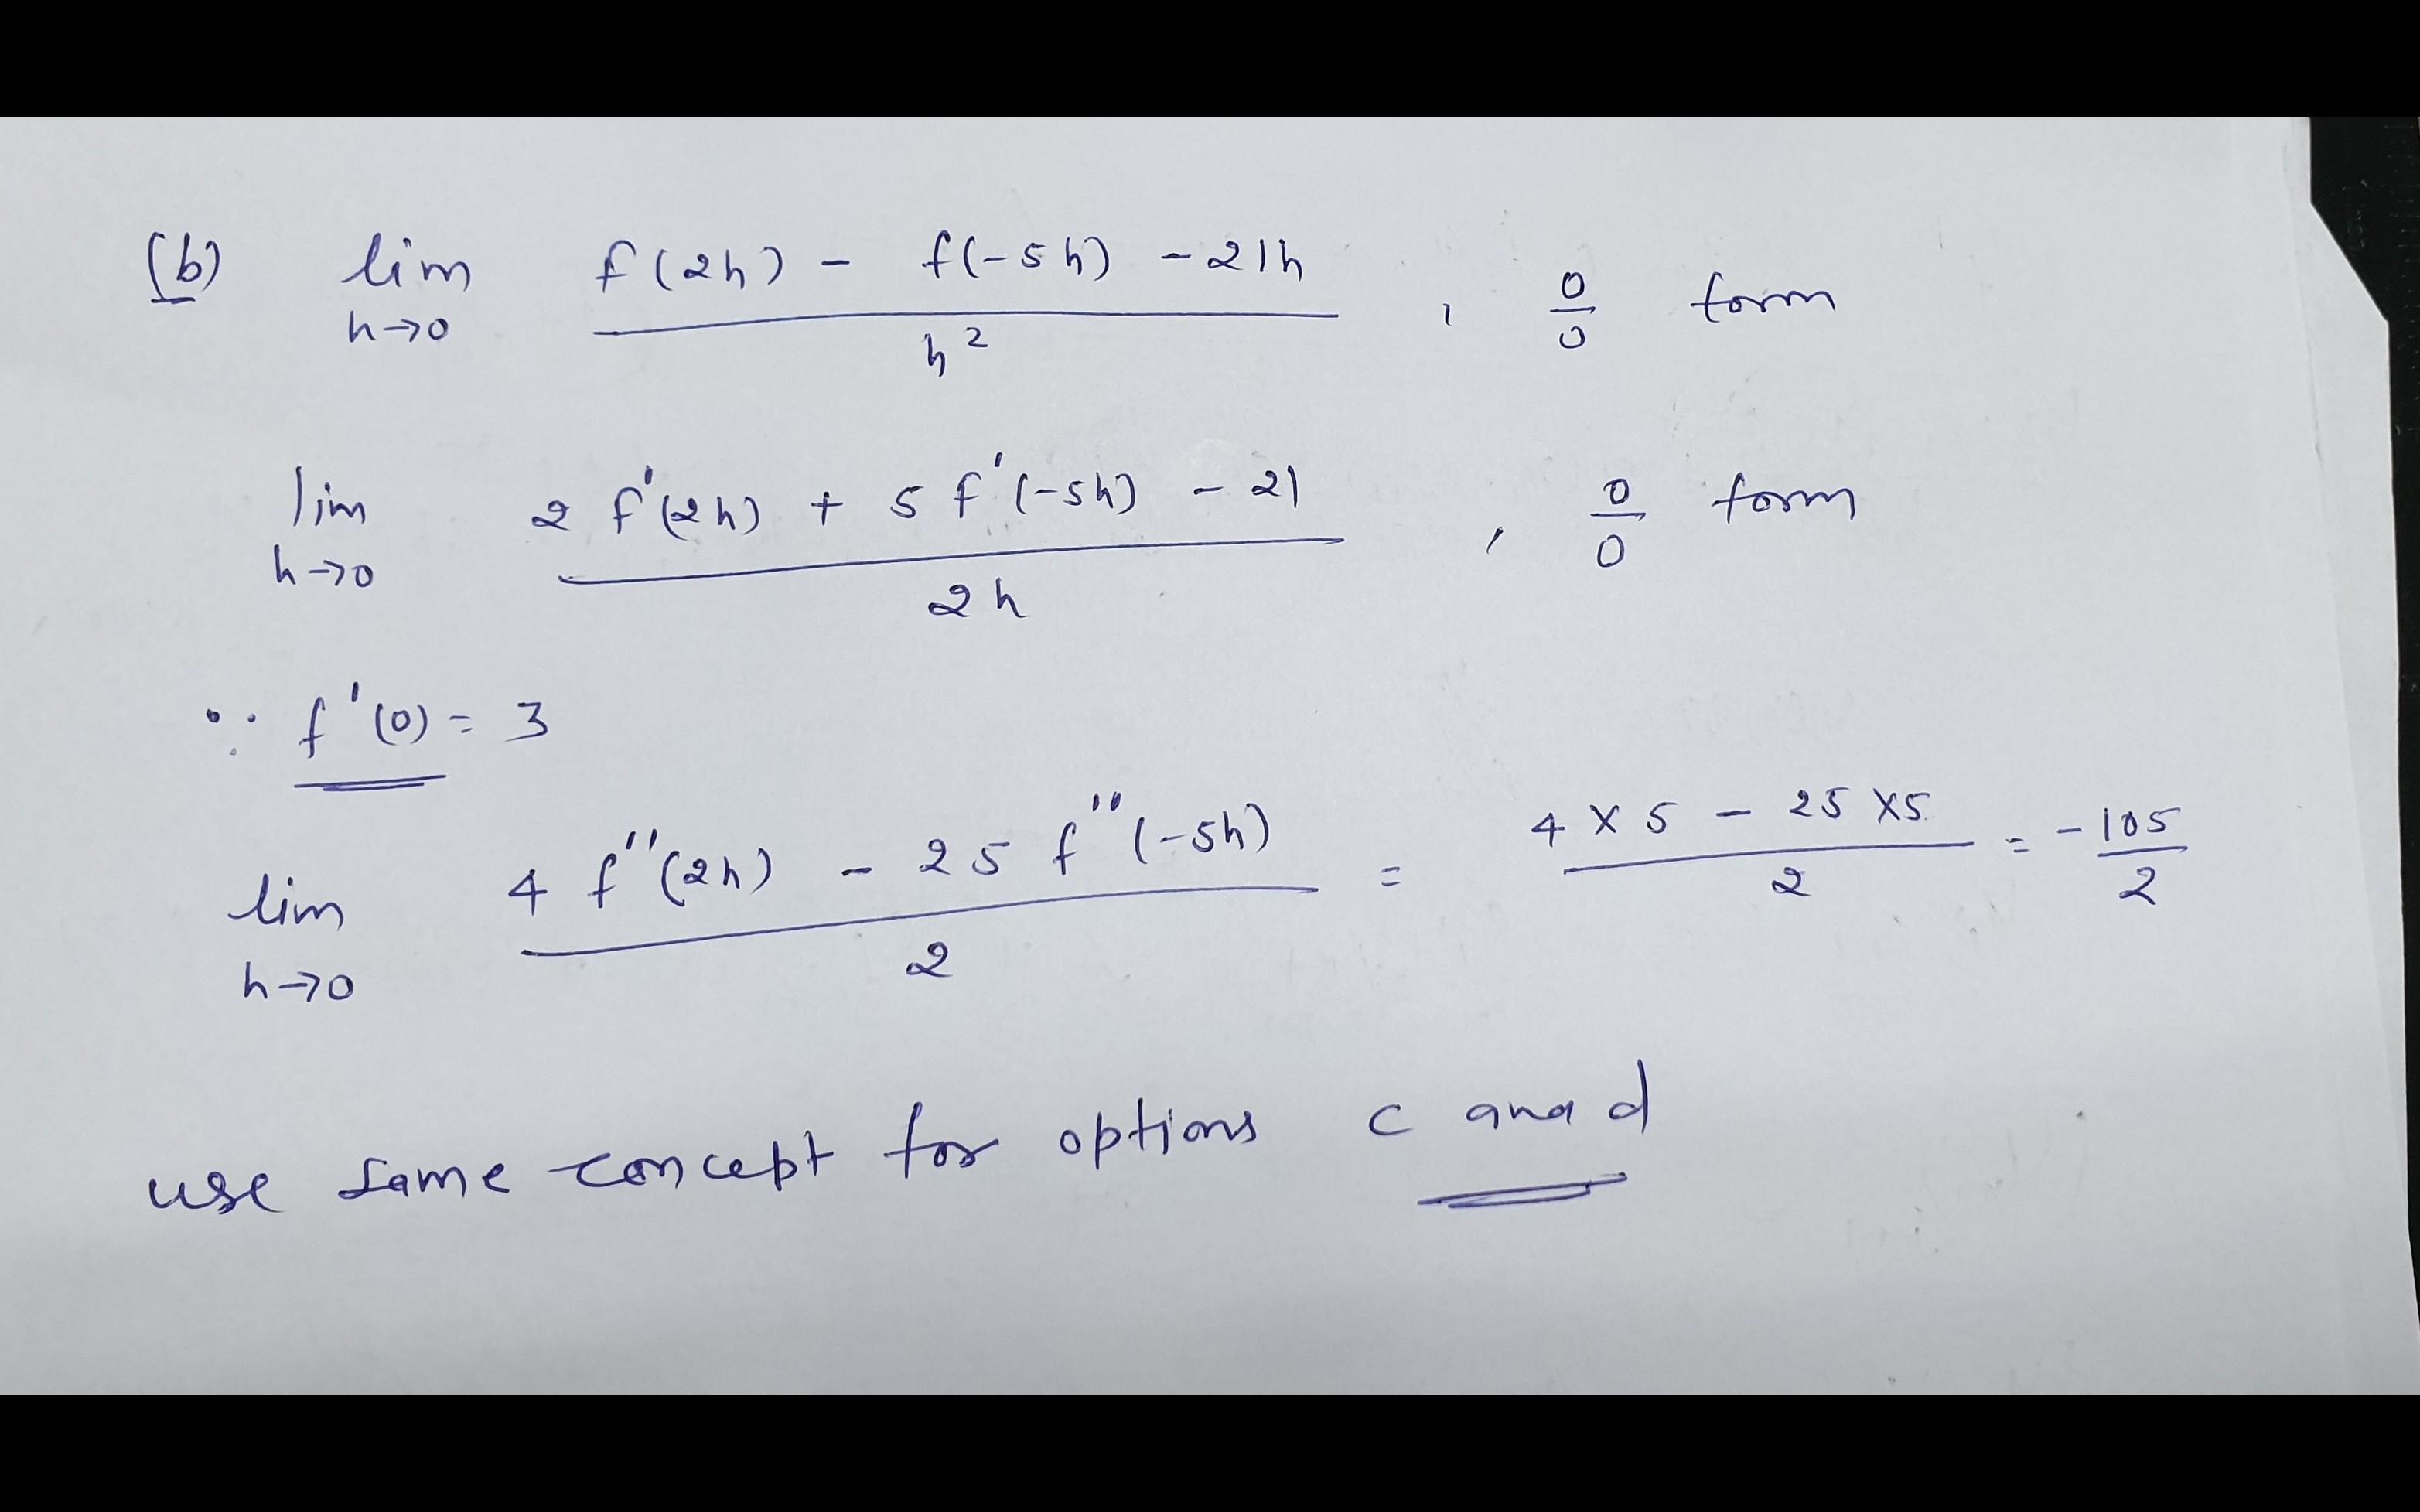 (b) lim h→0 f(2h) - f(-5h) - 21h / h² , 0/0 form
lim h→0 2 f'(2h) + 5 f'(-5h) - 21 / 2h , 0/0 form
∵ f'(0) = 3
lim h→0 4 f''(2h) - 25 f''(-5h) / 2 = 4 × 5 - 25 × 5 / 2 = -105/2
use same concept for options c and d